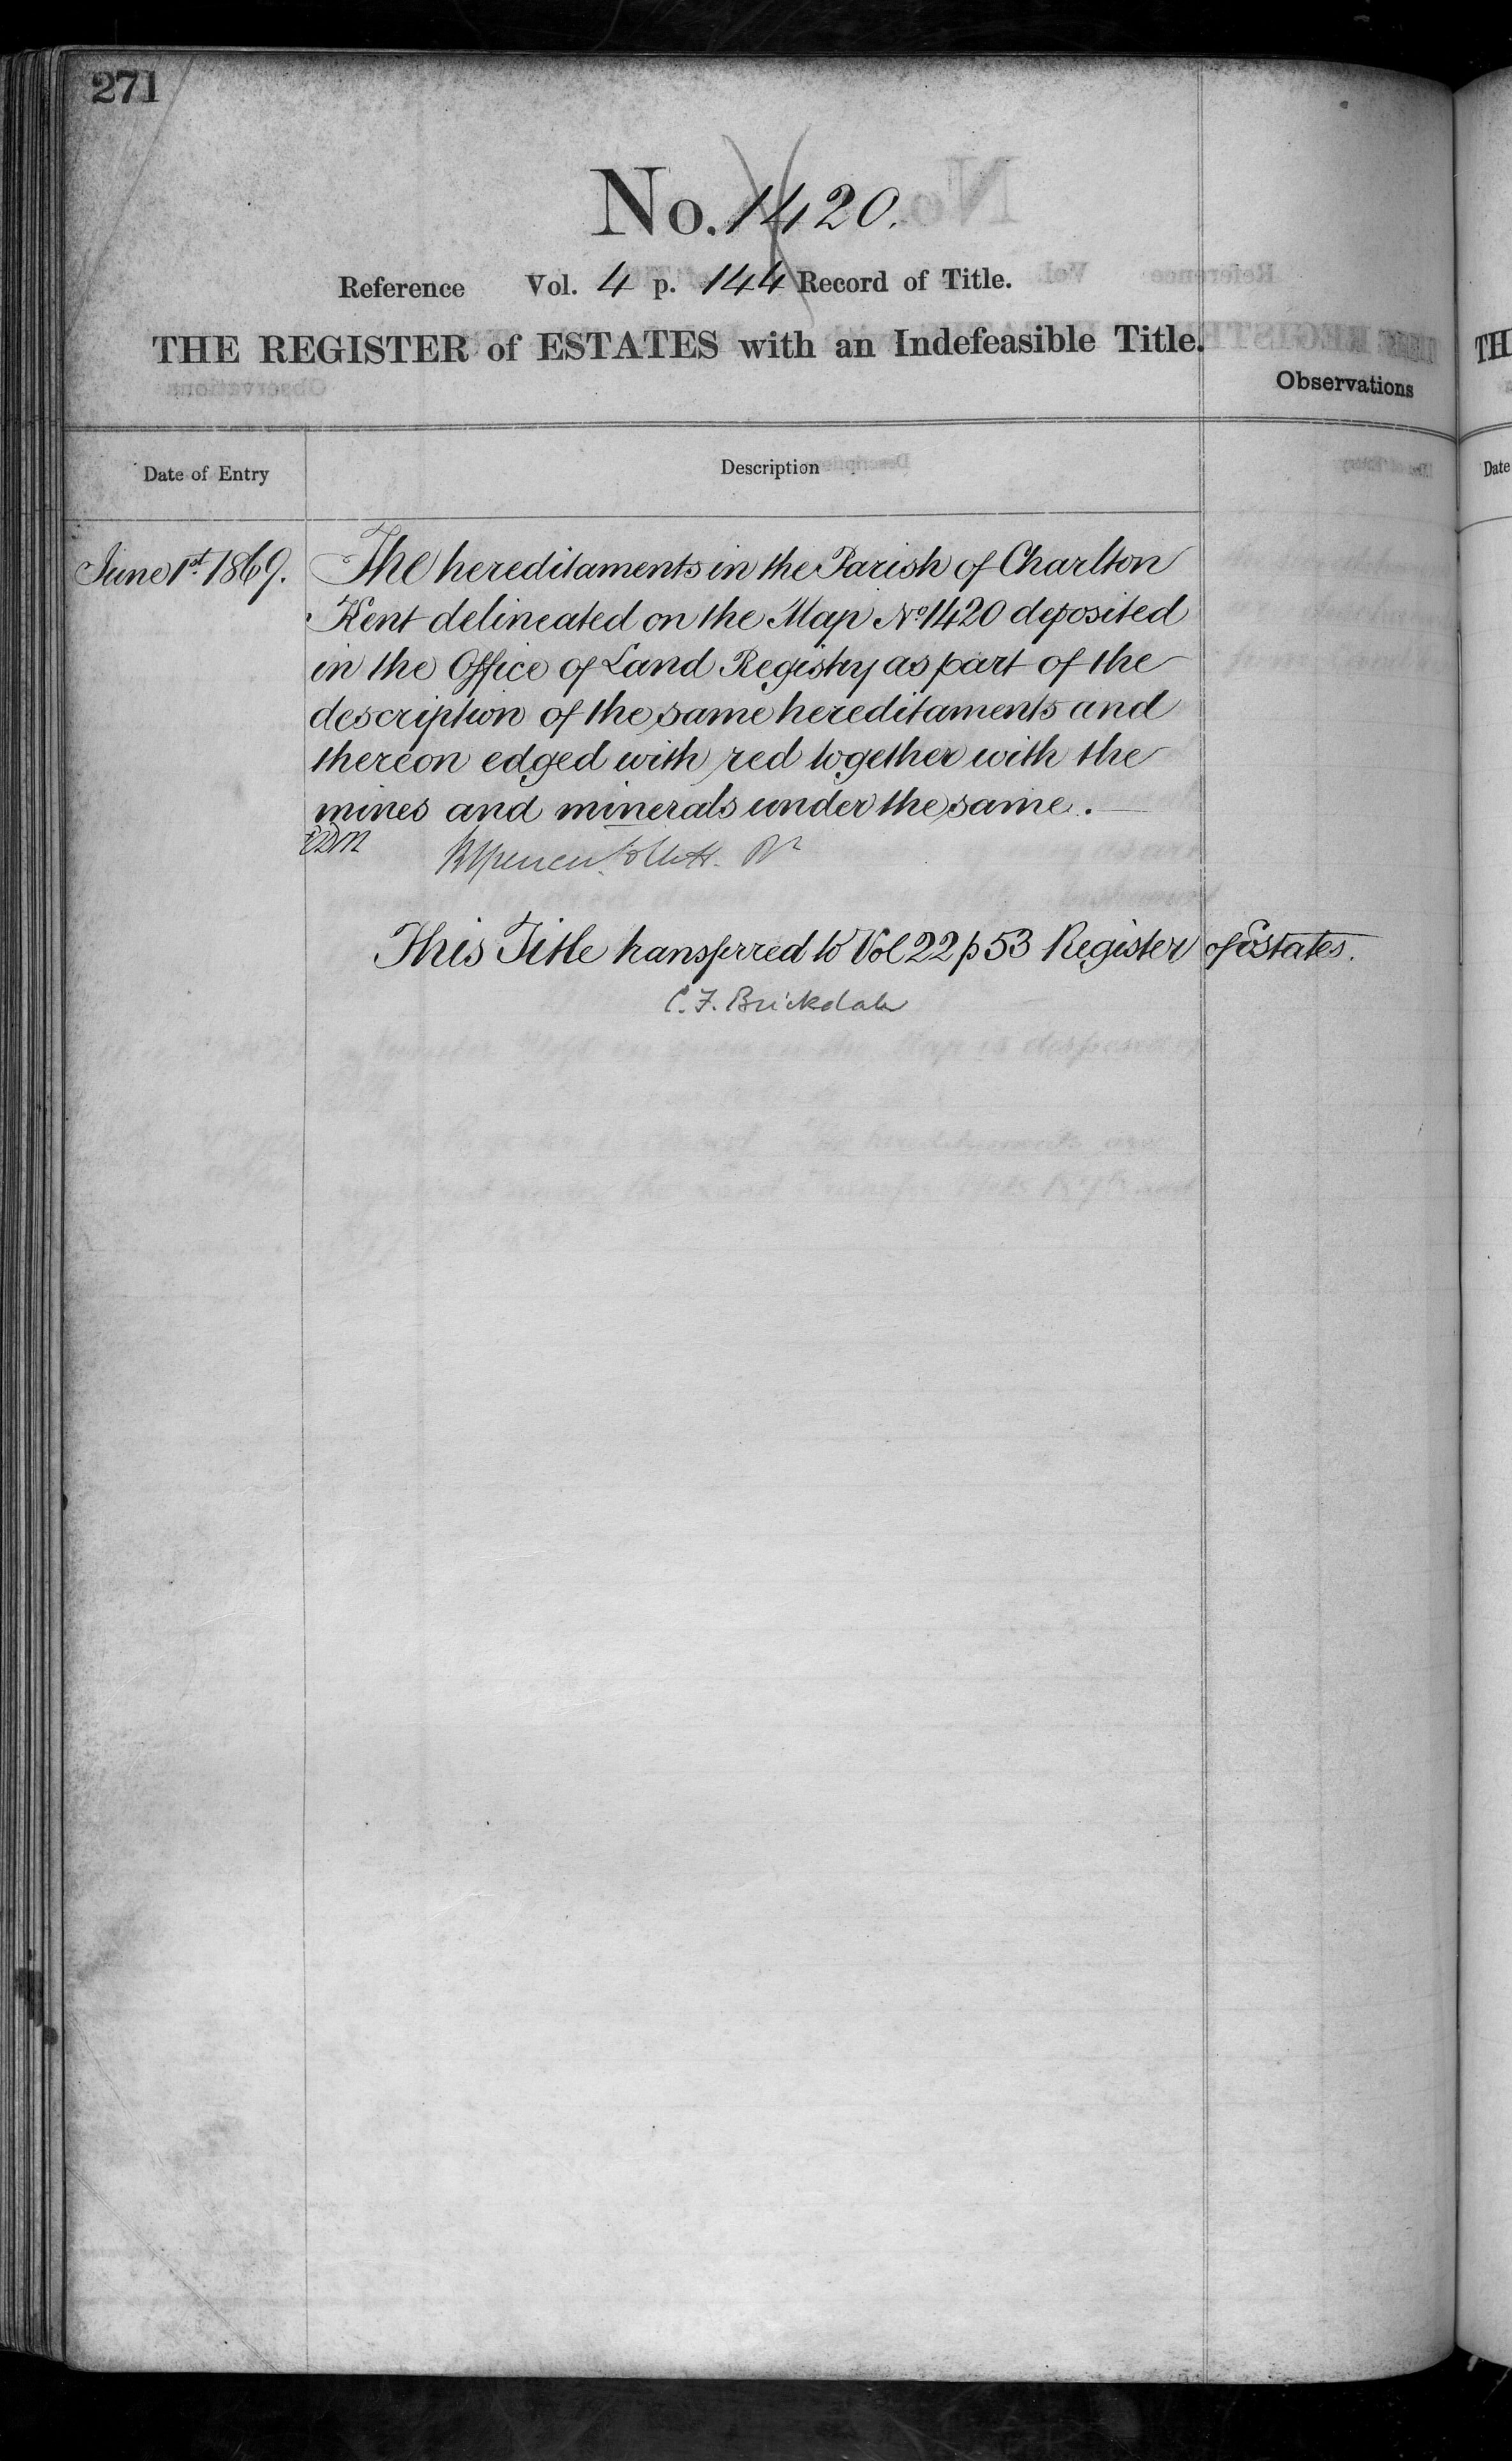 271
No. 1420.
Reference Vol. 4 p. 144 Record of Title.
THE REGISTER of ESTATES with an Indefeasible Title.
Observations
Date of Entry
Description
June 1st 1869.
The hereditaments in the Parish of Charlton
Kent delineated on the Map No 1420 deposited
in the Office of Land Registry as part of the
description of the same hereditaments and
thereon edged with red together with the
mines and minerals under the same.
This Title transferred to Vol 22 p 53 Register of Estates.
C. F. Brickdale
TH
Date